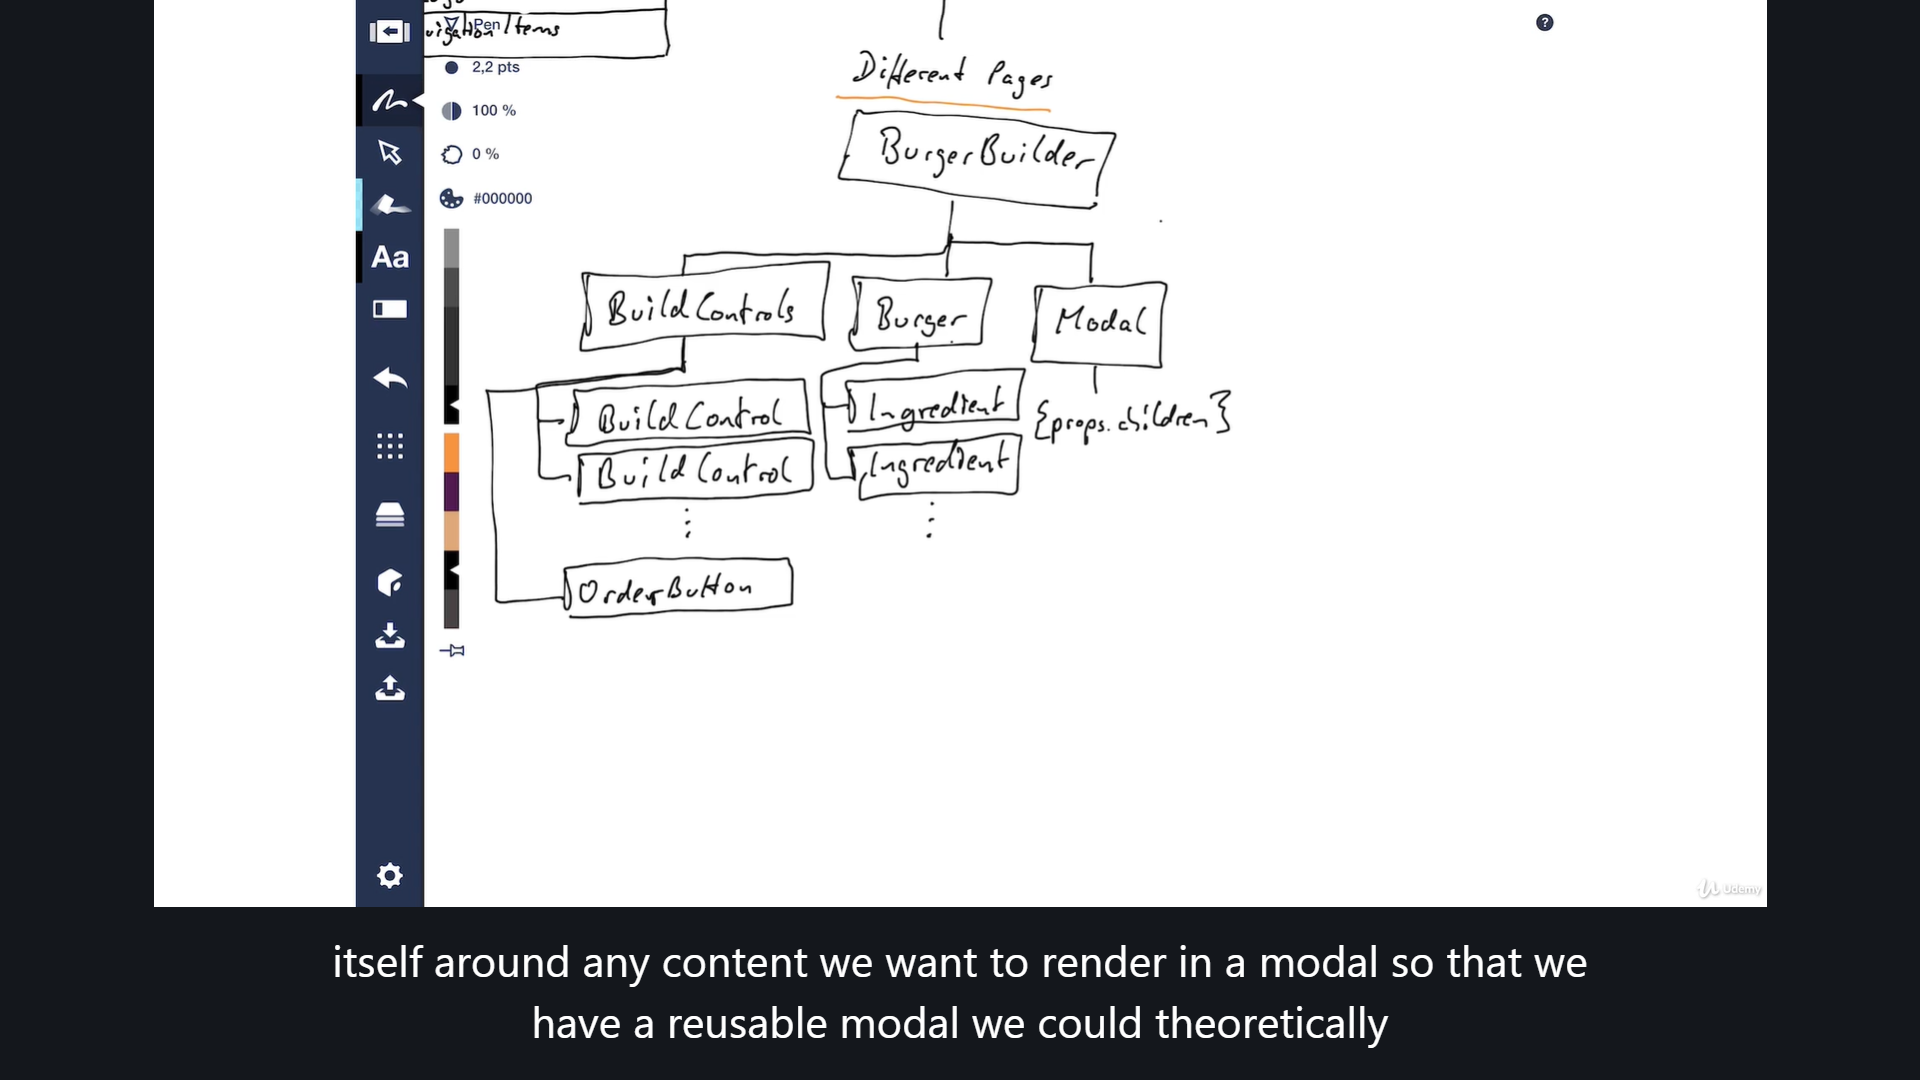 Pen
vigation Items
2,2 pts
100 %
0 %
#000000
Aa
?
Different Pages
BurgerBuilder
BuildControls
Burger
Modal
BuildControl
Ingredient
{props.children}
BuildControl
Ingredient
OrderButton
Udemy
itself around any content we want to render in a modal so that we
have a reusable modal we could theoretically